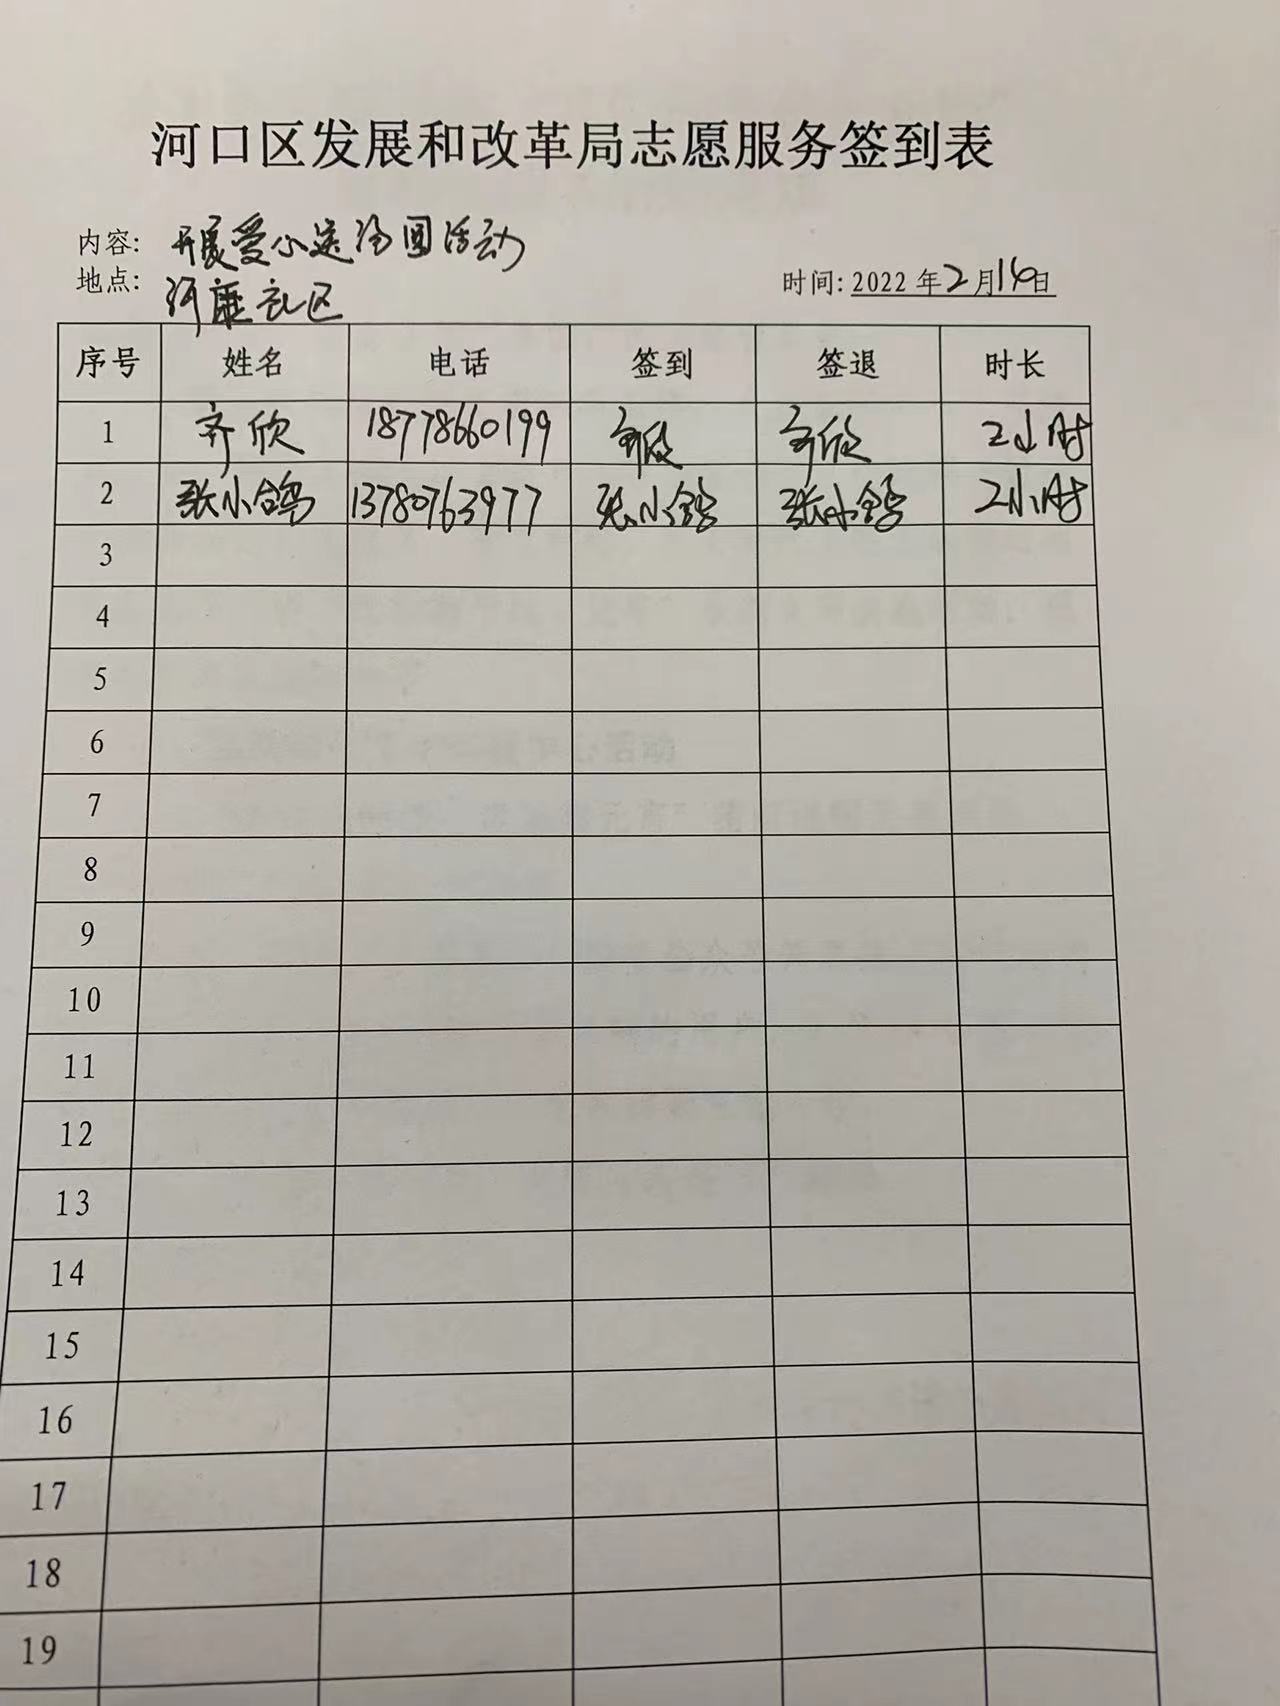 河口区发展和改革局志愿服务签到表
内容: 开展爱心送汤圆活动
地点: 河康社区
时间: 2022年2月14日
序号 姓名 电话 签到 签退 时长
1 齐欣 18778660199 齐欣 齐欣 2小时
2 张小鸽 13780763977 张小鸽 张小鸽 2小时
3
4
5
6
7
8
9
10
11
12
13
14
15
16
17
18
19